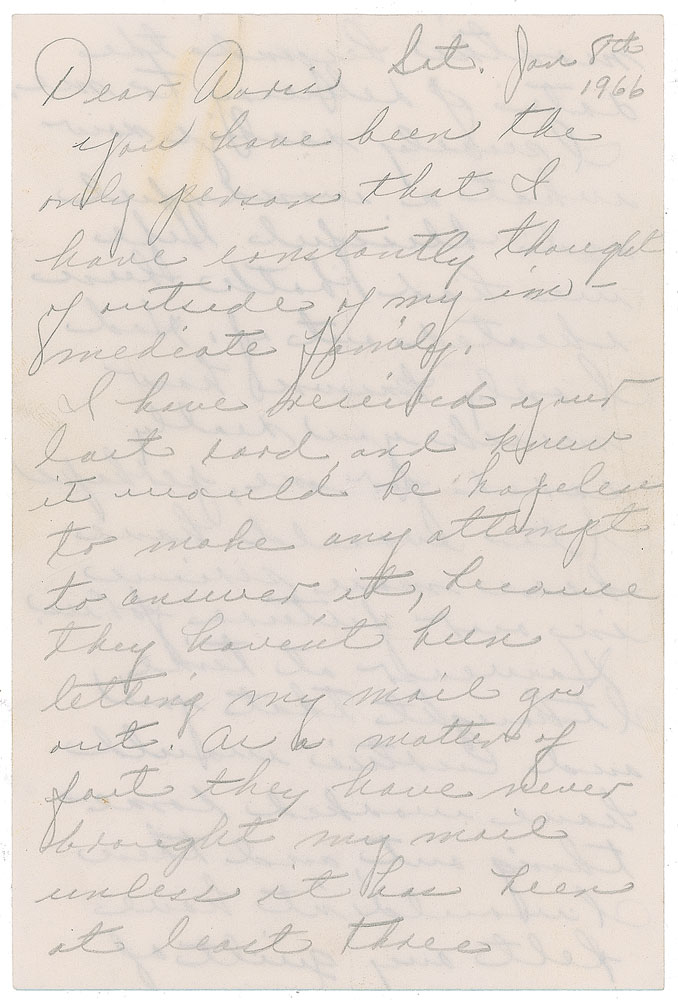 Sat. Jan 8th
1966
Dear Doris
You have been the
only person that I
have constantly thought
of outside of my im-
mediate family.
I have received your
last card, and knew
it would be hopeless
to make any attempt
to answer it, because
they haven't been
letting my mail go
out. As a matter of
fact they have never
brought my mail
unless it has been
at least three